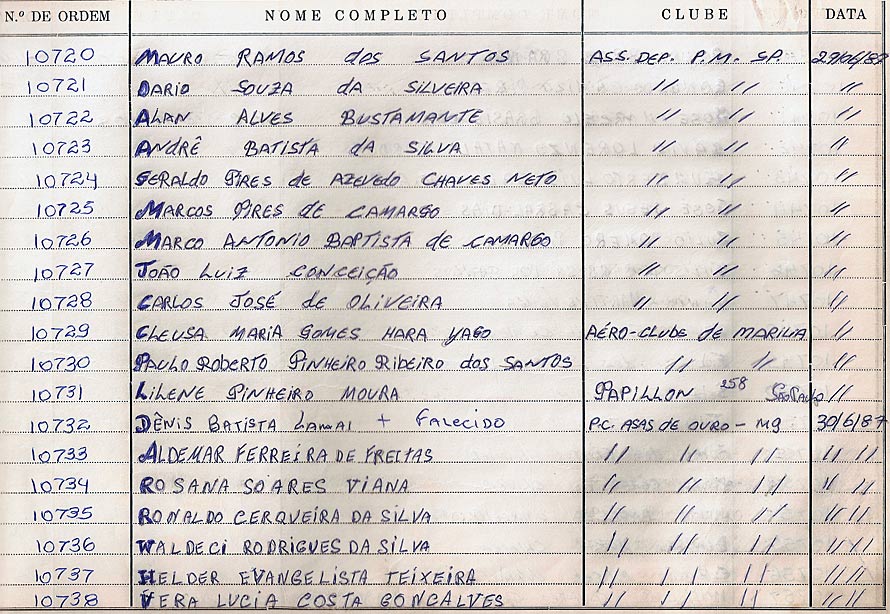 N.º DE ORDEM NOME COMPLETO CLUBE DATA
10720 MAURO RAMOS dos SANTOS ASS. DEP. P.M. SP. 29/06/87
10721 DARIO SOUZA da SILVEIRA // // //
10722 ALAN ALVES BUSTAMANTE // // //
10723 ANDRÊ BATISTA da SILVA // // //
10724 GERALDO PIRES de AZEVEDO CHAVES NETO // // //
10725 MARCOS PIRES de CAMARGO // // //
10726 MARCO ANTONIO BAPTISTA de CAMARGO // // //
10727 JOÃO LUIZ CONCEIÇÃO // // //
10728 CARLOS JOSÉ de OLIVEIRA // // //
10729 CLEUSA MARIA GOMES HARA YAGO AÉRO-CLUBE de MARILIA //
10730 PAULO ROBERTO PINHEIRO RIBEIRO dos SANTOS // // //
10731 LILENE PINHEIRO MOURA PAPILLON 258 SÃO PAULO //
10732 DÊNIS BATISTA LAMAI + FALECIDO P.C. ASAS DE OURO - MG 30/6/87
10733 ALDEMAR FERREIRA DE FREITAS // // // // //
10734 ROSANA SOARES VIANA // // // // //
10735 RONALDO CERQUEIRA DA SILVA // // // // //
10736 WALDECI RODRIGUES DA SILVA // // // // //
10737 HELDER EVANGELISTA TEIXEIRA // // // // //
10738 VERA LUCIA COSTA GONCALVES // // // // //